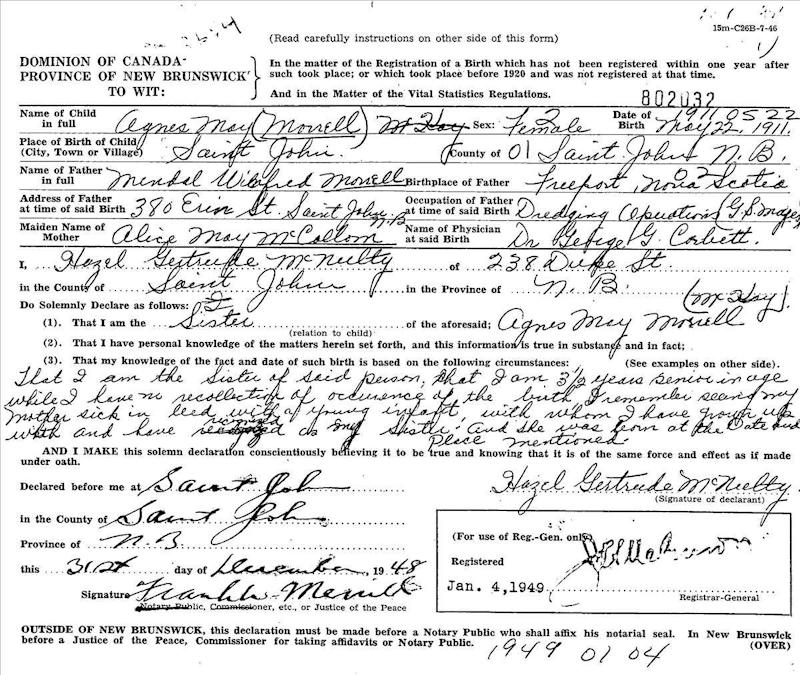 (Read carefully instructions on other side of this form)
15m-C26B-7-46
DOMINION OF CANADA
PROVINCE OF NEW BRUNSWICK
TO WIT:
In the matter of the Registration of a Birth which has not been registered within one year after
such took place; or which took place before 1920 and was not registered at that time.
And in the Matter of the Vital Statistics Regulations.
802032
Name of Child in full Agnes May (Morrell) McKay Sex: Female 2 Date of Birth May 22, 1911. 1911 05 22
Place of Birth of Child (City, Town or Village) Saint John. County of 01 Saint John N.B.
Name of Father in full Mendal Wilfred Morrell Birthplace of Father Freeport, Nova Scotia 02
Address of Father at time of said Birth 380 Erin St. Saint John N.B. Occupation of Father at time of said Birth Dredging Operations (G.S. Mayes)
Maiden Name of Mother Alice May McCollom Name of Physician at said Birth Dr George G. Corbett.
I, Hazel Gertrude McNeilty of 238 Duke St.
in the County of Saint John in the Province of N. B.
Do Solemnly Declare as follows:
(1). That I am the Sister of the aforesaid; Agnes May Morrell (McKay).
(relation to child)
(2). That I have personal knowledge of the matters herein set forth, and this information is true in substance and in fact;
(3). That my knowledge of the fact and date of such birth is based on the following circumstances: (See examples on other side).
That I am the Sister of said person, that I am 3½ years senior in age
while I have no recollection of occurence of the birth I remember seeing my
Mother sick in bed with a young infant, with whom I have grown up
with and have recognized as my Sister and she was born at the Date and
Place mentioned
AND I MAKE this solemn declaration conscientiously believing it to be true and knowing that it is of the same force and effect as if made
under oath.
Declared before me at Saint John
Hazel Gertrude McNeilty.
(Signature of declarant)
in the County of Saint John
Province of N.B.
this 31st day of December 1948
Signature
Notary Public, Commissioner, etc., or Justice of the Peace
(For use of Reg.-Gen. only)
Registered
Jan. 4,1949
Registrar-General
OUTSIDE OF NEW BRUNSWICK, this declaration must be made before a Notary Public who shall affix his notarial seal. In New Brunswick
before a Justice of the Peace, Commissioner for taking affidavits or Notary Public. (OVER)
1949 01 04